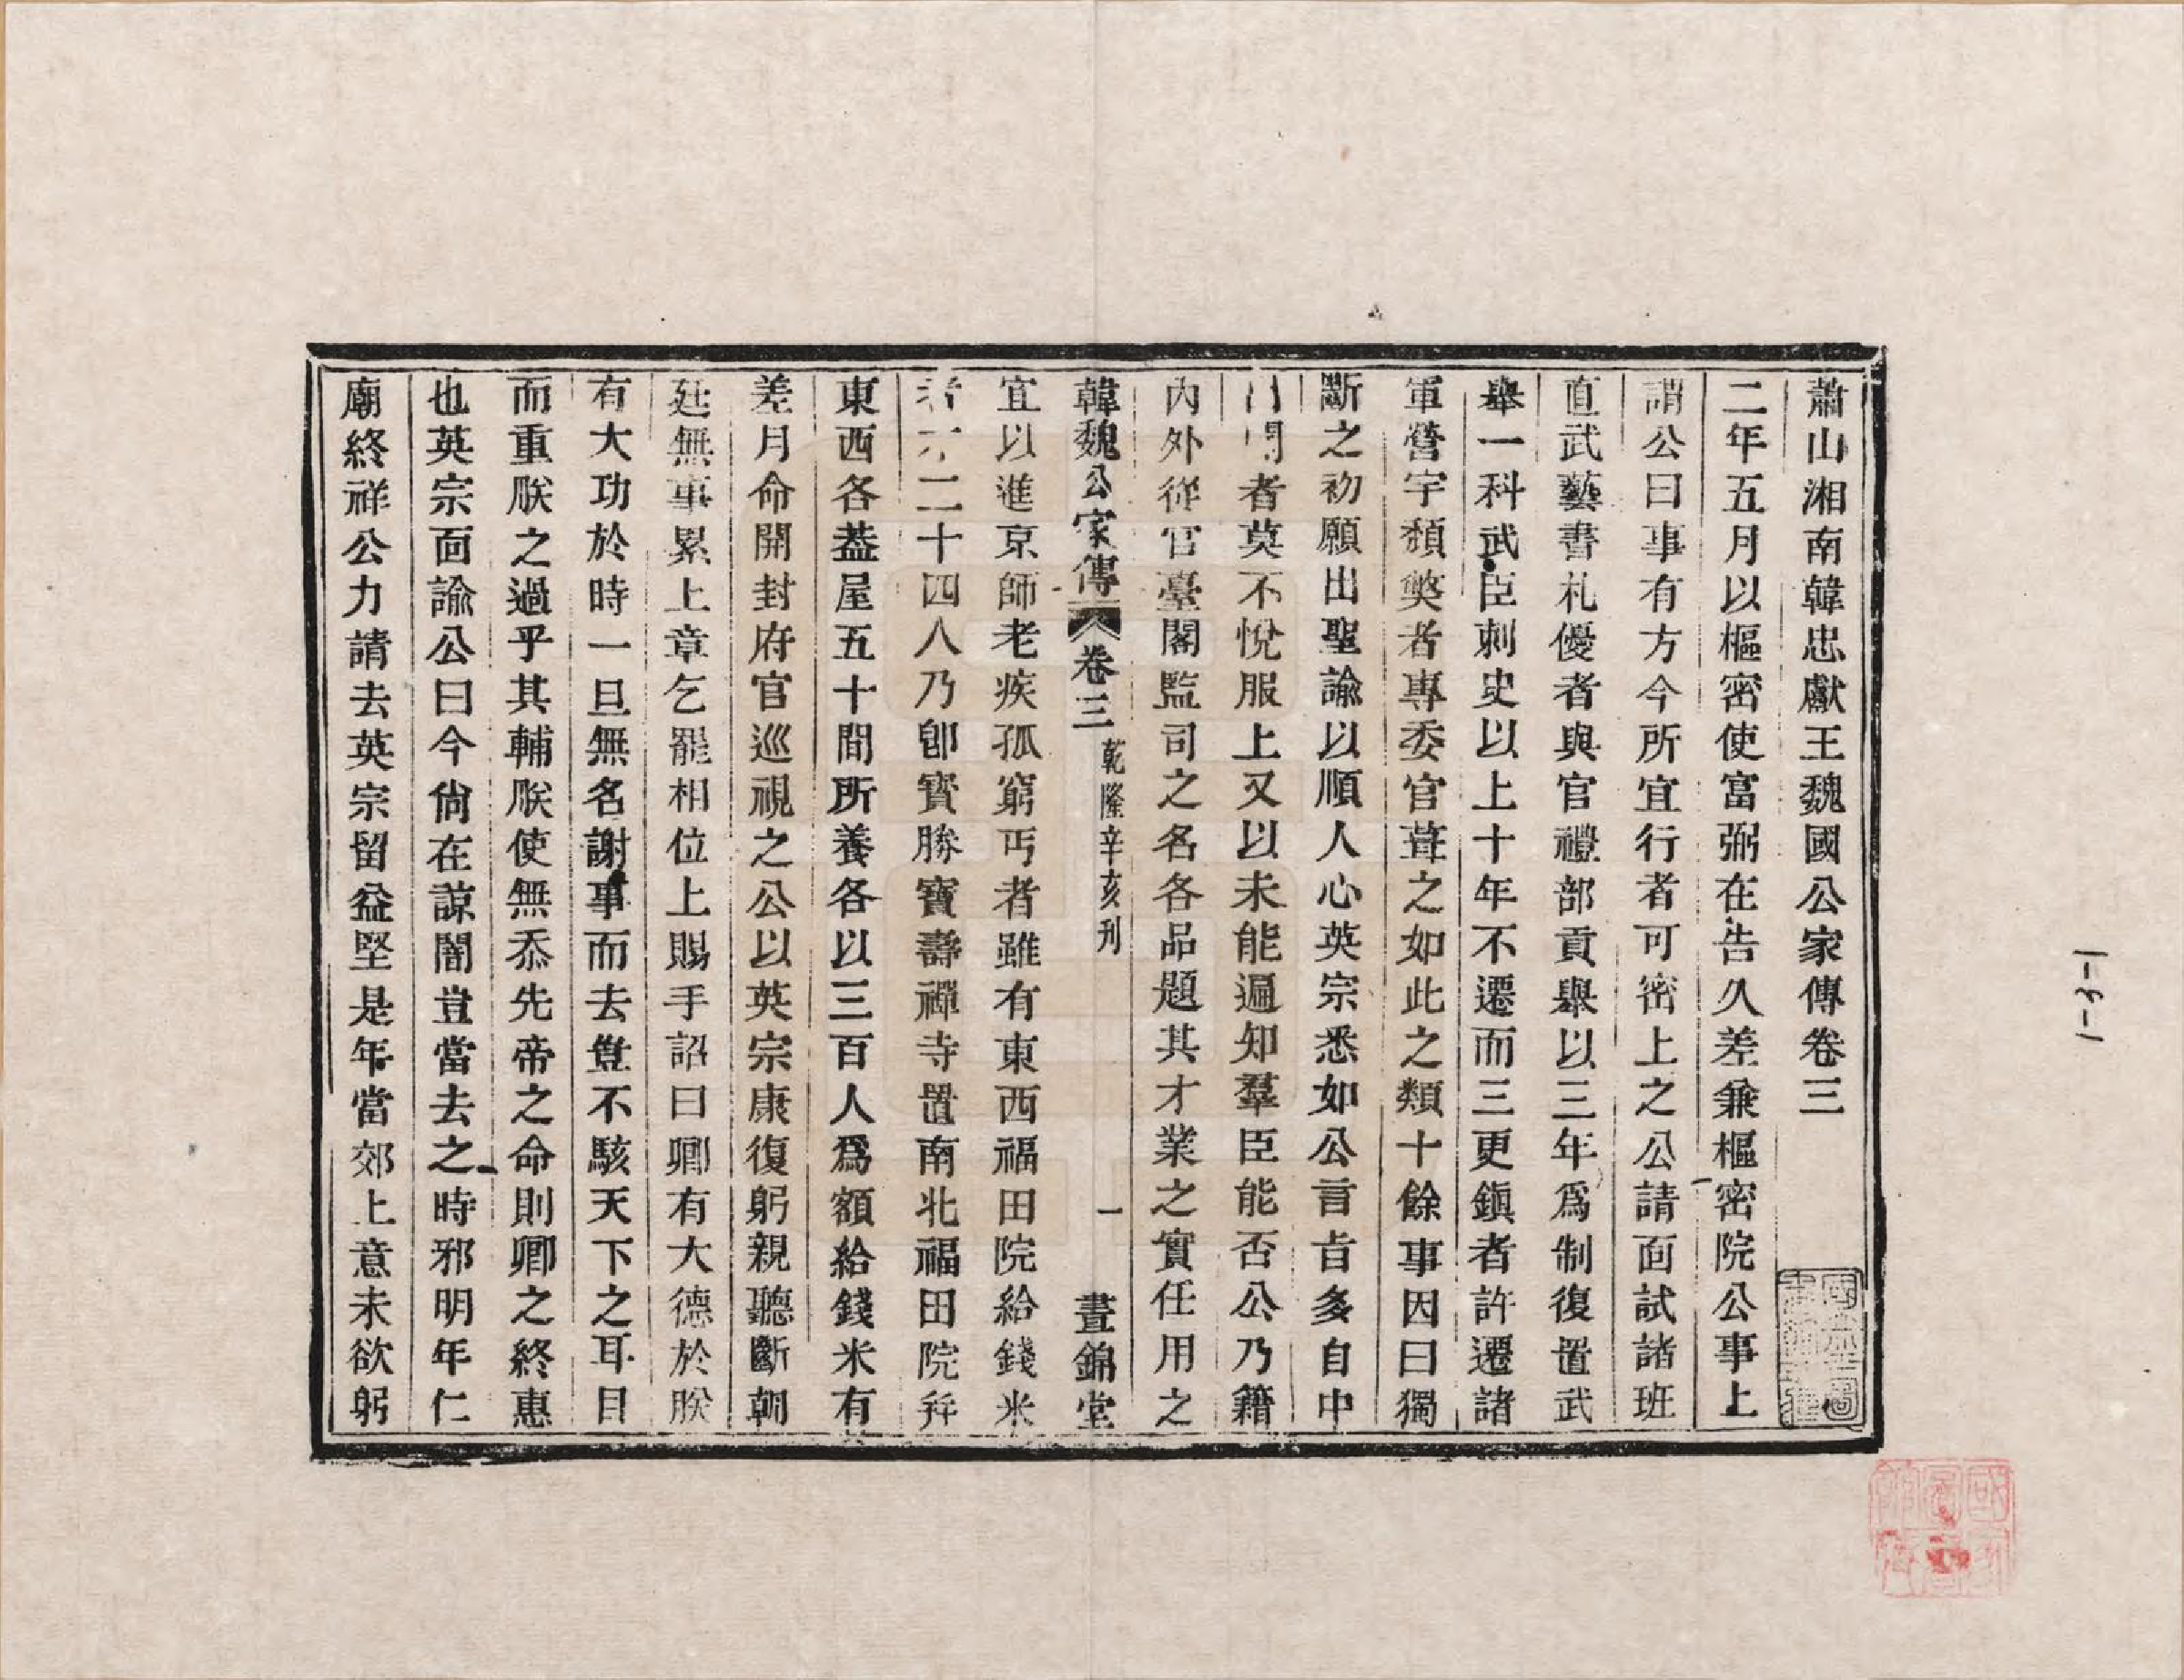 蕭山湘南韓忠獻王魏國公家傳卷三
二年五月以樞密使富弼在告久差兼樞密院公事上
謂公曰事有方今所宜行者可密上之公請面試諸班
直武藝書札優者與官禮部貢舉以三年爲制復置武
舉一科武臣刺史以上十年不遷而三更鎭者許遷諸
軍營宇頹獘者專委官葺之如此之類十餘事因曰獨
斷之初願出聖諭以順人心英宗悉如公言旨多自中
出聞者莫不悅服上又以未能遍知羣臣能否公乃籍
內外從官臺閣監司之名各品題其才業之實任用之
韓魏公家傳 卷三 乾隆辛亥刊 一 晝錦堂
宜以進京師老疾孤窮丐者雖有東西福田院給錢米
者才二十四人乃卽寶勝寶壽禪寺置南北福田院幷
東西各葢屋五十間所養各以三百人爲額給錢米有
差月命開封府官巡視之公以英宗康復躬親聽斷朝
廷無事累上章乞罷相位上賜手詔曰卿有大德於朕
有大功於時一旦無名謝事而去豈不駭天下之耳目
而重朕之過乎其輔朕使無忝先帝之命則卿之終惠
也英宗面諭公曰今尙在諒闇豈當去之時邪明年仁
廟終祥公力請去英宗留益堅是年當郊上意未欲躬
1-3-1